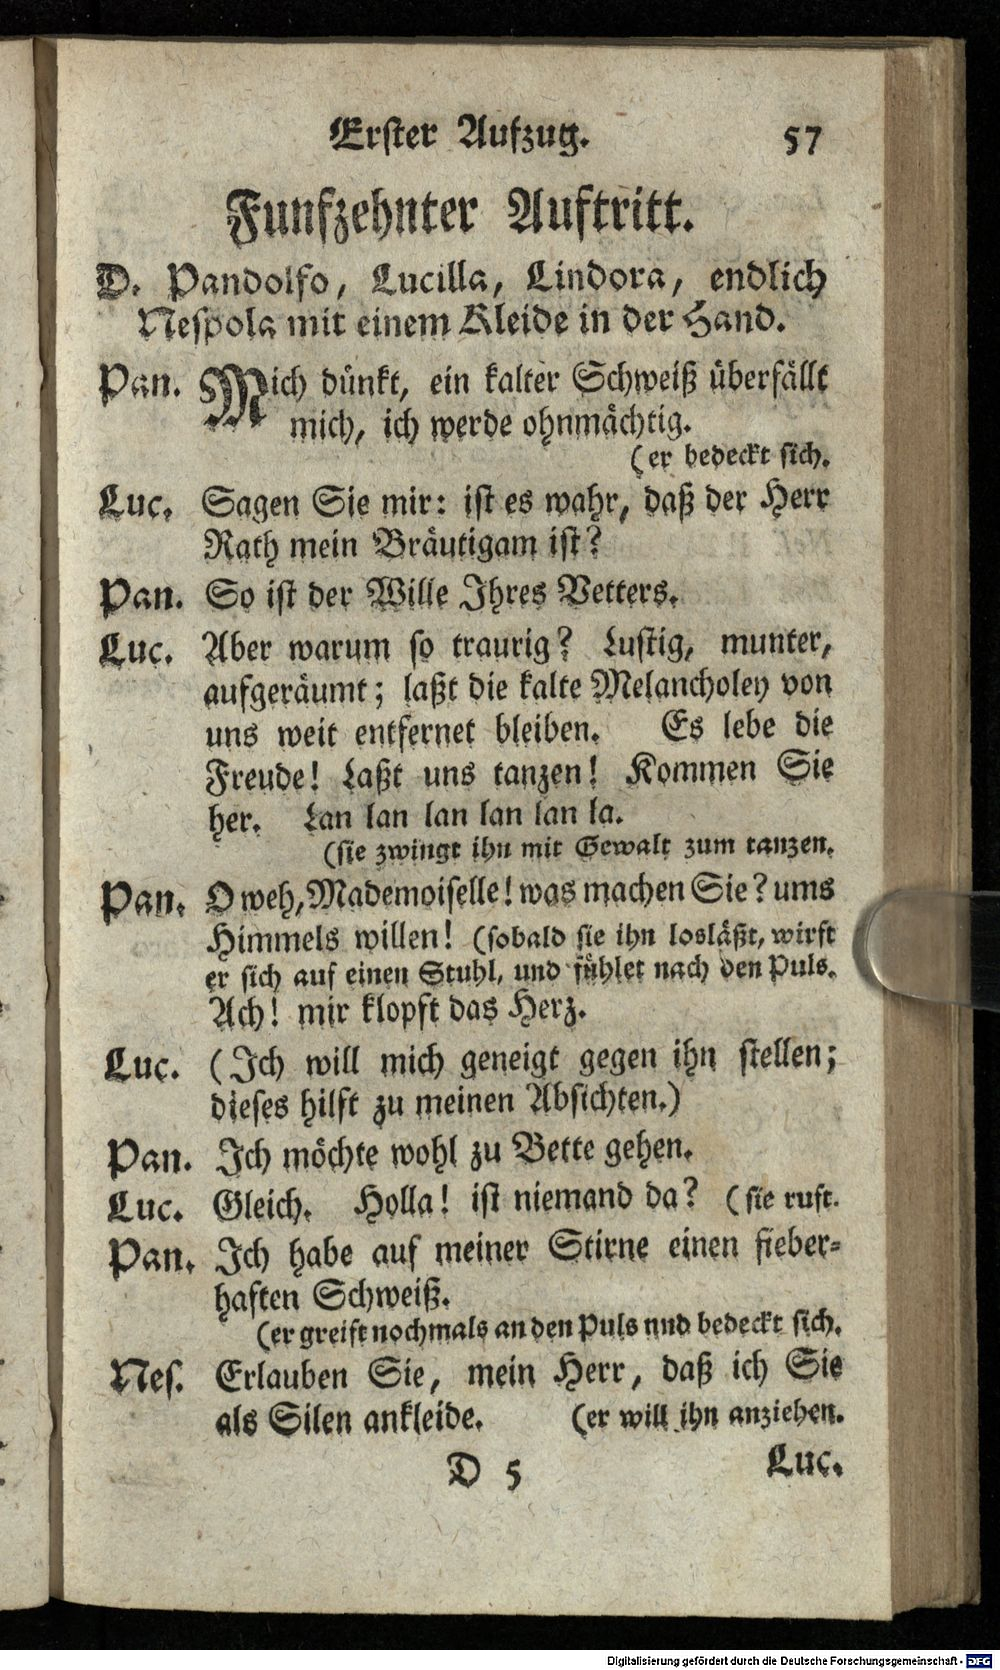 Erster Aufzug. 57
Funfzehnter Auftritt.
D. Pandolfo, Lucilla, Lindora, endlich
Nespola mit einem Kleide in der Hand.
Pan. Mich dünkt, ein kalter Schweiß überfällt
mich, ich werde ohnmächtig.
(er bedeckt sich.
Luc. Sagen Sie mir: ist es wahr, daß der Herr
Rath mein Bräutigam ist?
Pan. So ist der Wille Ihres Vetters.
Luc. Aber warum so traurig? Lustig, munter,
aufgeräumt; laßt die kalte Melancholey von
uns weit entfernet bleiben. Es lebe die
Freude! Laßt uns tanzen! Kommen Sie
her. Lan lan lan lan lan la.
(sie zwingt ihn mit Gewalt zum tanzen.
Pan. O weh, Mademoiselle! was machen Sie? ums
Himmels willen! (sobald sie ihn losläßt, wirft
er sich auf einen Stuhl, und fühlet nach den Puls.
Ach! mir klopft das Herz.
Luc. (Ich will mich geneigt gegen ihn stellen;
dieses hilft zu meinen Absichten.)
Pan. Ich möchte wohl zu Bette gehen.
Luc. Gleich. Holla! ist niemand da? (sie ruft.
Pan. Ich habe auf meiner Stirne einen fieber-
haften Schweiß.
(er greift nochmals an den Puls nnd bedeckt sich.
Nes. Erlauben Sie, mein Herr, daß ich Sie
als Silen ankleide. (er will ihn anziehen.
D 5 Luc.
Digitalisierung gefördert durch die Deutsche Forschungsgemeinschaft - DFG